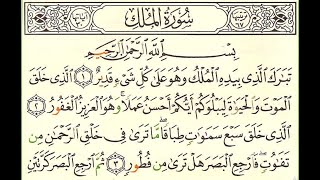 سُورَةُ الْمُلْكِ
بِسْمِ اللَّهِ الرَّحْمَٰنِ الرَّحِيمِ
تَبَارَكَ الَّذِي بِيَدِهِ الْمُلْكُ وَهُوَ عَلَىٰ كُلِّ شَيْءٍ قَدِيرٌ ١ الَّذِي خَلَقَ
الْمَوْتَ وَالْحَيَاةَ لِيَبْلُوَكُمْ أَيُّكُمْ أَحْسَنُ عَمَلًا وَهُوَ الْعَزِيزُ الْغَفُورُ ٢
الَّذِي خَلَقَ سَبْعَ سَمَاوَاتٍ طِبَاقًا مَّا تَرَىٰ فِي خَلْقِ الرَّحْمَٰنِ مِن
تَفَاوُتٍ فَارْجِعِ الْبَصَرَ هَلْ تَرَىٰ مِن فُطُورٍ ٣ ثُمَّ ارْجِعِ الْبَصَرَ كَرَّتَيْنِ